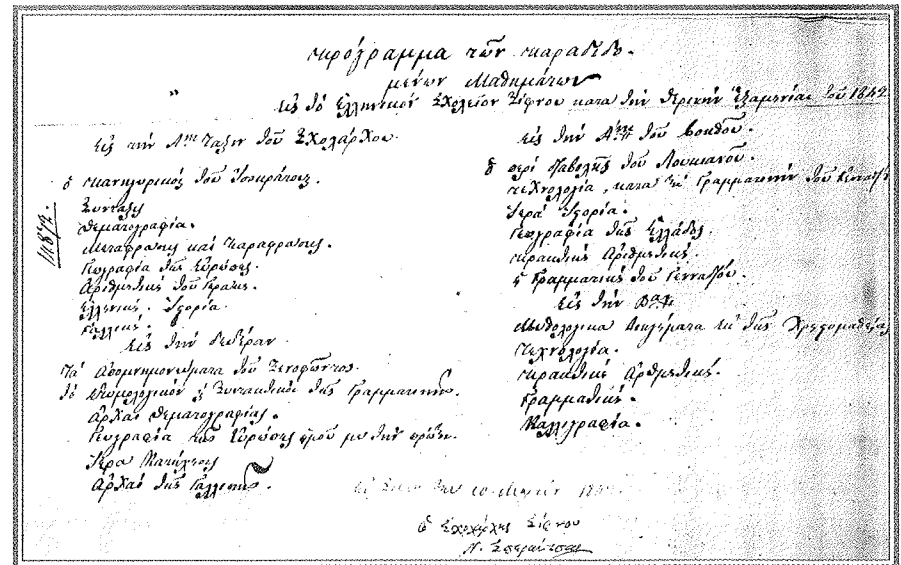 Πρόγραμμα τῶν παραδιδο-
μένων Μαθημάτων
εἰς τὸ Ἑλληνικὸν Σχολεῖον Σίφνου κατὰ τὴν θερινὴν ἑξαμηνίαν τοῦ 1849
εἰς τὴν Αην Τάξιν τοῦ Σχολάρχου.
ὁ πανηγυρικὸς τοῦ Ἰσοκράτους.
Σύνταξις
Θεματογραφία.
Μετάφρασις καὶ παράφρασις.
Γεωγραφία τῆς Εὐρώπης.
Ἀριθμητικὴ τοῦ
Ἑλληνικὴ Ἱστορία.
Γαλλικὴ.
Εἰς τὴν δευτέραν
Τὰ ἀπομνημονεύματα τοῦ Ξενοφῶντος.
τὸ ἐτυμολογικὸν Συντακτικὸν τῆς Γραμματικῆς.
ἀρχαὶ Θεματογραφίας.
Γεωγραφία τῆς Εὐρώπης ὁμοῦ μὲ τὴν πρώτην.
Ἱερὰ Κατήχησις
ἀρχαὶ τῆς Γαλλικῆς.
εἰς τὴν Αην τοῦ βοηθοῦ.
περὶ διαβολῆς τοῦ Λουκιανοῦ.
τεχνολογία, κατὰ τὴν Γραμματικὴν τοῦ Γενναδίου
Ἱερὰ Ἱστορία.
Γεωγραφία τῆς Ἑλλάδος.
πρακτικὴ Ἀριθμητικὴ.
Γραμματικὴ τοῦ Γενναδίου.
Εἰς τὴν Βαν
Μυθολογικὰ διηγήματα ἐκ τῆς Χρηστομαθείας
τεχνολογία.
πρακτικὴ ἀριθμητικὴ.
Γραμματικὴ.
Καλλιγραφία.
ὁ Σχολάρχης Σίφνου
Ν. Σπεράντσας